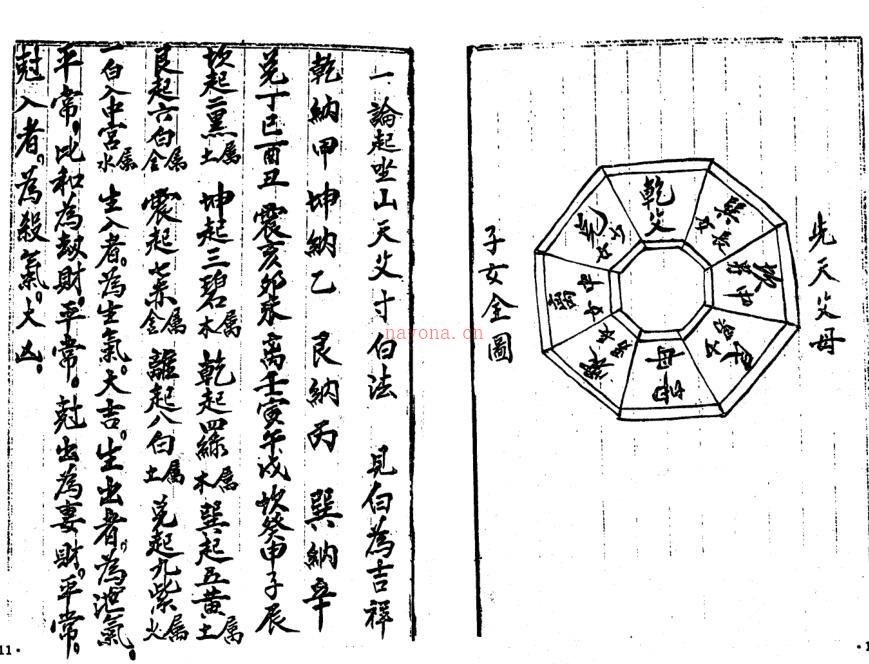 先天父母
子女全圖
乾父
巽長女
坎中男
坤母
一論起坐山天父寸白法 見白為吉祥
乾納甲 坤納乙 艮納丙 巽納辛
兌丁巳酉丑 震亥卯未 离壬寅午戌 坎癸申子辰
坎起二黑屬土 坤起三碧屬木 乾起四綠屬木 巽起五黃屬土
艮起六白屬金 震起七赤屬金 離起八白屬土 兌起九紫屬火
一白入中宮屬水 生入者。為生氣。大吉。生出者。為泄氣。
平常。比和為劫財。平常。尅出為妻財。平常。
尅入者。為殺氣。大凶。
11·
nayona.cn